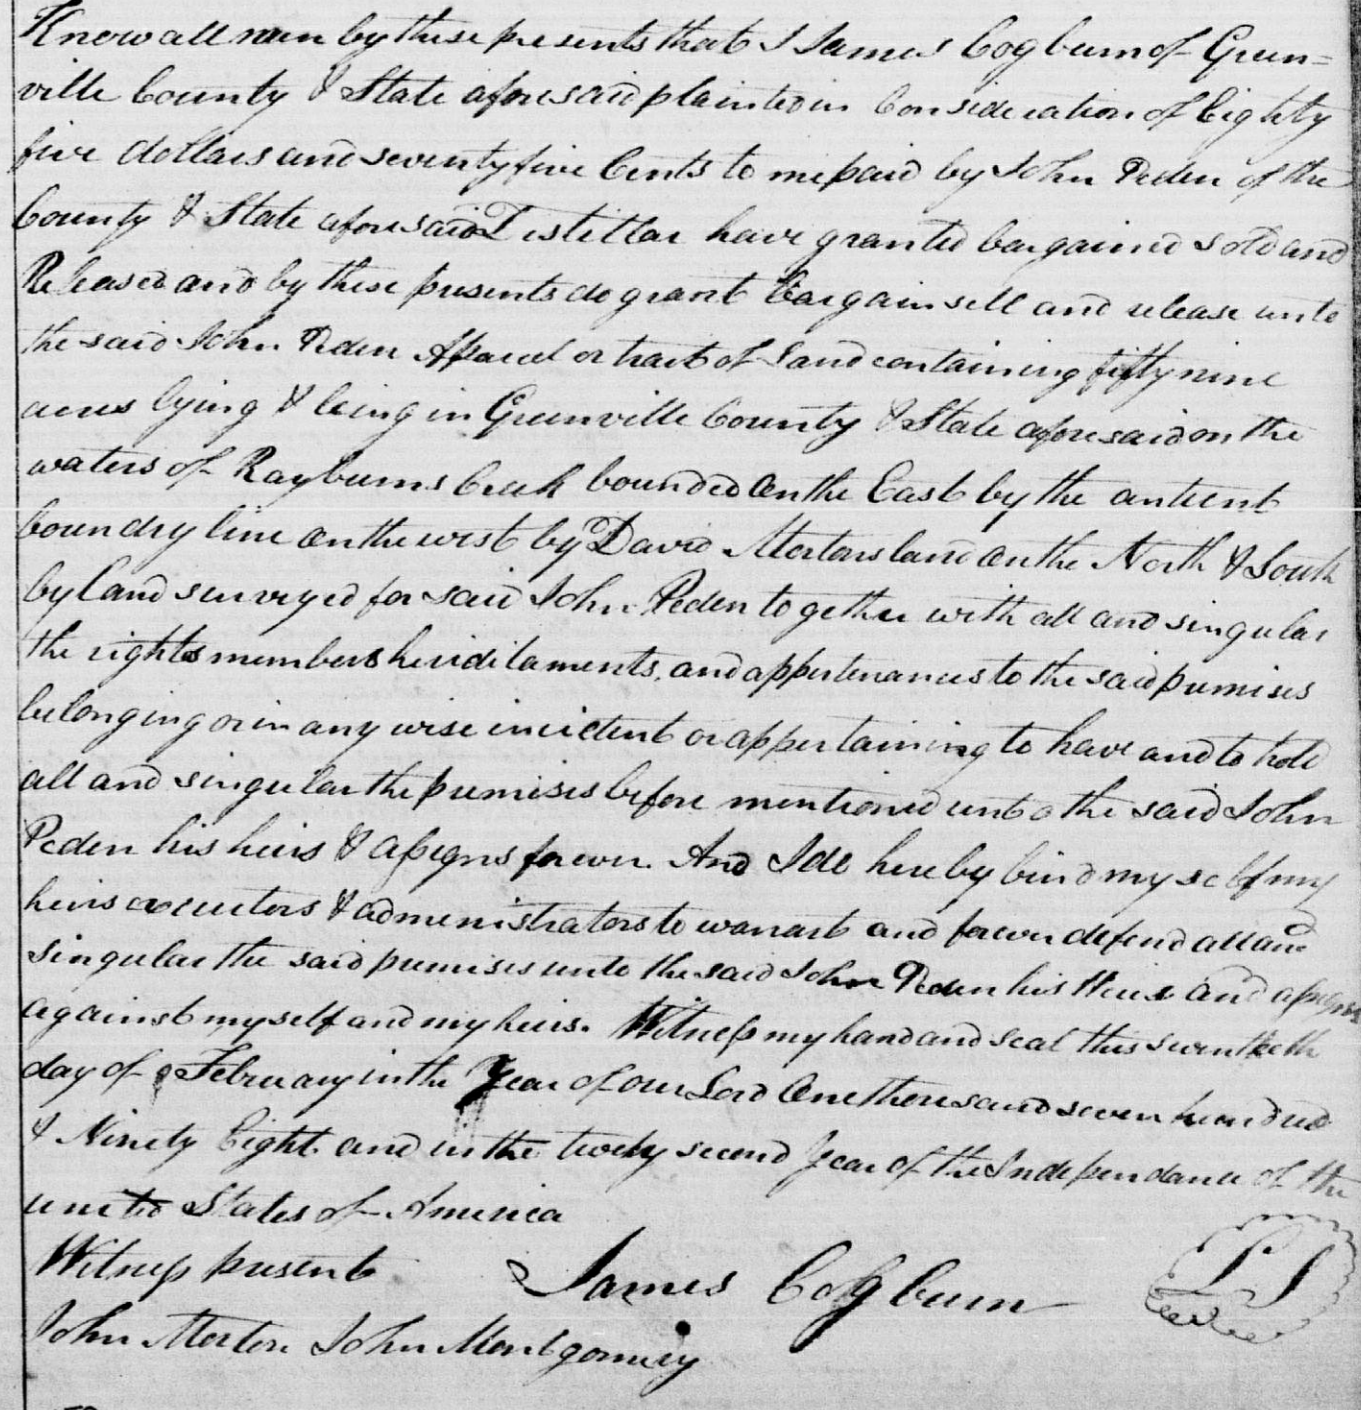 Know all men by these presents that I James Cogburn of Green=
ville County & State aforesaid planter in Consideration of Eighty
five dollars and seventy five Cents to me paid by John Peden of the
County & State aforesaid have granted bargained sold and
Released and by these presents do grant Bargain sell and release unto
the said John Peden A parcel or tract of Land containing fifty nine
acres lying & being in Greenville County & State aforesaid on the
waters of Rayburns Creek bounded On the East by the antient
boundry line On the west by David Mortons land On the North & South
by land surveyed for said John Peden together with all and singular
the rights members heriditaments, and appertenances to the said premises
belonging or in any wise incident or appertaining to have and to hold
all and singular the premises before mentioned unto the said John
Peden his heirs & assigns forever. And I do hereby bind my self my
heirs executors & administrators to warrant and forever defend all and
singular the said premises unto the said John Peden his Heirs and assigns
against my self and my heirs. Witness my hand and seal this
day of February in the Year of our Lord One thousand seven hundred
& Ninety Eight and in the twenty second Year of the Independance of the
united States of America
Witness present James Cogburn L S
John Morton John Montgomery